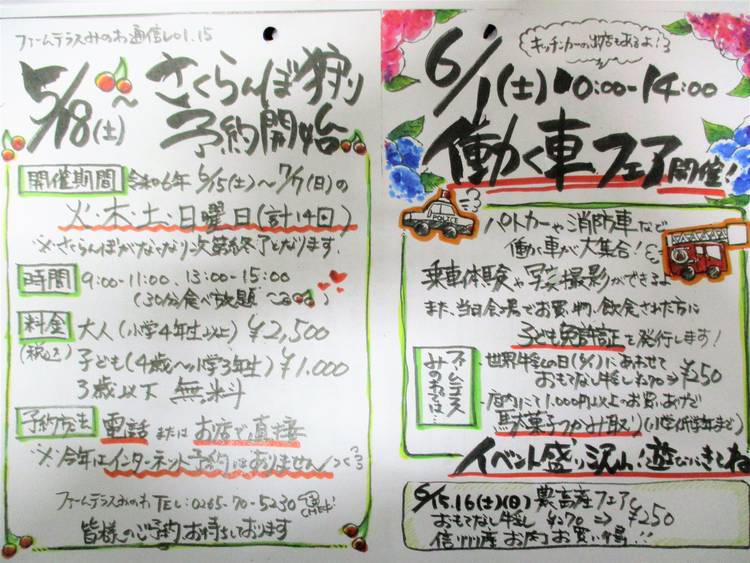 ファームテラスみのわ通信vol.15
5/18(土)～ さくらんぼ狩り
予約開始
開催期間 令和6年 6/15(土)～7/7(日)の
火・木・土・日曜日(計14回)
※さくらんぼがなくなり次第終了となります。
時間 9:00-11:00、13:00-15:00
(30分食べ放題
料金 大人(小学4年生以上) ¥2,500
(税込) 子ども(4歳～小学3年生) ¥1,000
3歳以下 無料
予約方法 電話 または お店で直接
※今年はインターネット予約はありません
ファームテラスみのわ TEL:0265-70-5230
皆様のご予約、お待ちしております
キッチンカーの出店もあるよ!
6/1(土) 10:00-14:00
働く車フェア開催!
POLICE
パトカーや消防車など
働く車が大集合!
乗車体験や写真撮影ができるよ
また、当日会場でお買い物、飲食された方に
子ども免許証を発行します!
ファームテラスみのわでは…
・世界牛乳の日(6/1)にあわせて
おもてなし牛乳 ¥270⇒¥250
・店内にて1,000円以上のお買いあげで
駄菓子つかみ取り(小学6年生まで)
イベント盛り沢山!遊びにきてね
6/15.16(土)(日) 農畜産フェア
おもてなし牛乳 ¥270⇒¥250
信州産お肉お買い得!!